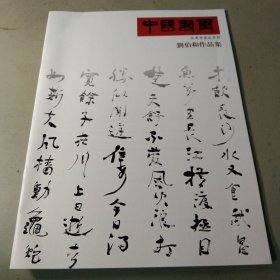 中國書畫
劉伯和作品集
才飲長沙水又食武昌
魚萬里長江橫渡極目
楚天舒不管風吹浪打
勝似閒庭信步今日得
寬餘子在川上曰逝者
如斯夫風檣動龜蛇